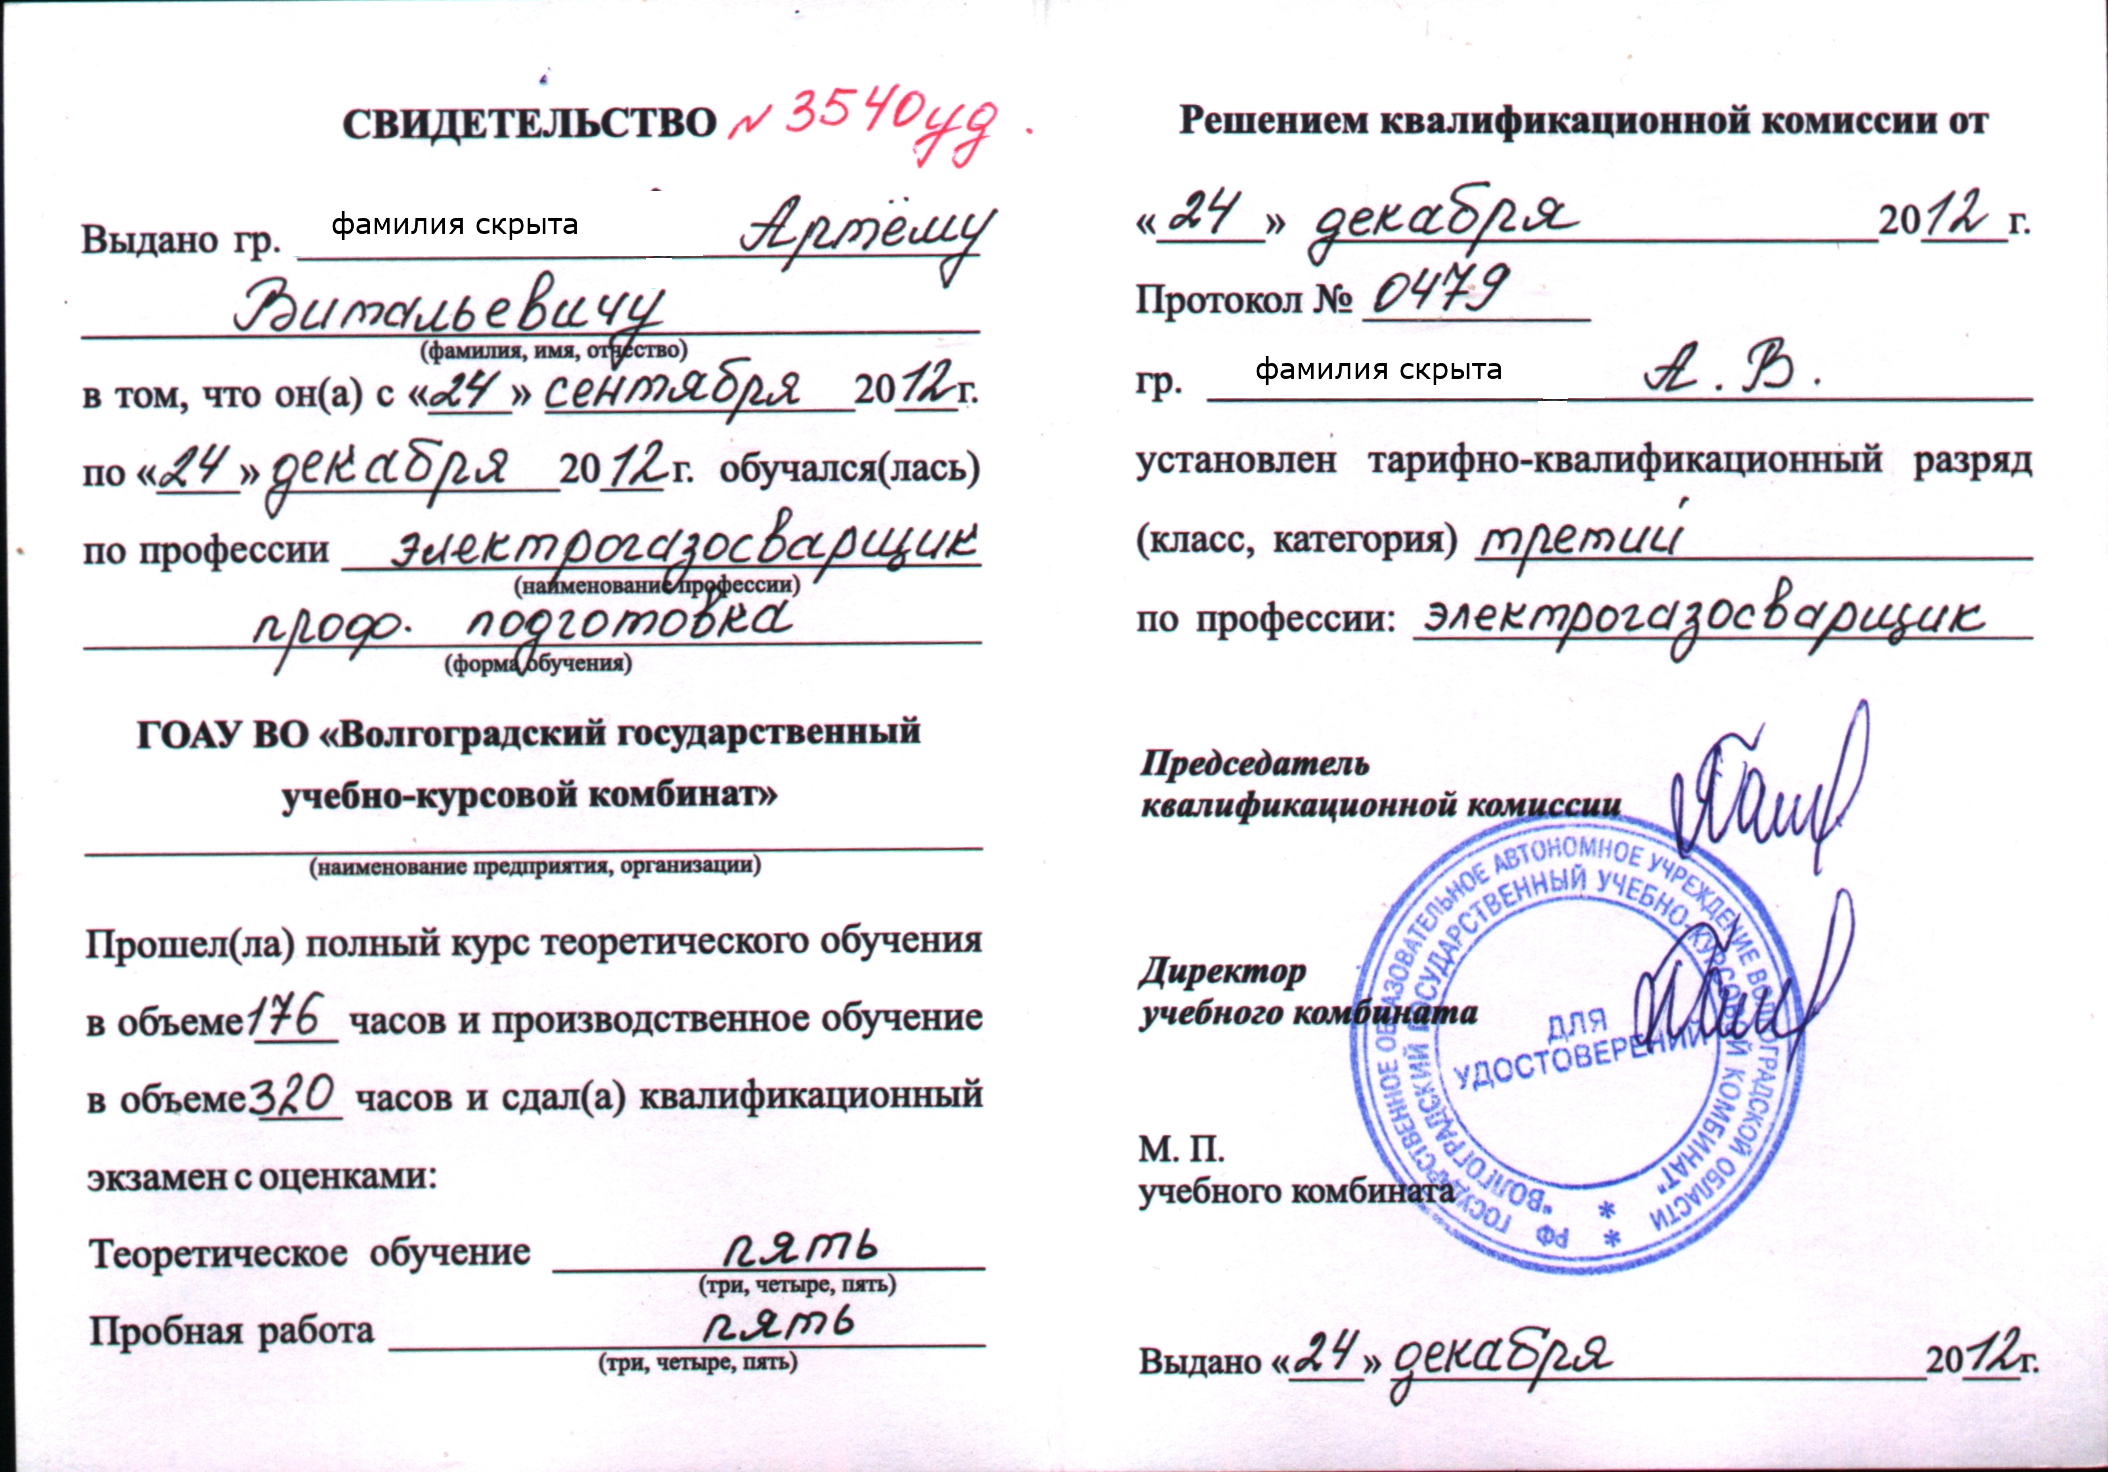 СВИДЕТЕЛЬСТВО N 3540уд.
Выдано гр. фамилия скрыта Артёму
Витальевичу
(фамилия, имя, отчество)
в том, что он(а) с «24» сентября 2012г.
по «24» декабря 2012г. обучался(лась)
по профессии электрогазосварщик
(наименование профессии)
проф. подготовка
(форма обучения)
ГОАУ ВО «Волгоградский государственный
учебно-курсовой комбинат»
(наименование предприятия, организации)
Прошел(ла) полный курс теоретического обучения
в объеме 176 часов и производственное обучение
в объеме 320 часов и сдал(а) квалификационный
экзамен с оценками:
Теоретическое обучение пять
(три, четыре, пять)
Пробная работа пять
(три, четыре, пять)
Решением квалификационной комиссии от
«24» декабря 2012 г.
Протокол № 0479
гр. фамилия скрыта А. В.
установлен тарифно-квалификационный разряд
(класс, категория) третий
по профессии: электрогазосварщик
Председатель
квалификационной комиссии
Директор
учебного комбината
М. П.
учебного комбината
РФ ГОСУДАРСТВЕННОЕ ОБРАЗОВАТЕЛЬНОЕ АВТОНОМНОЕ УЧРЕЖДЕНИЕ ВОЛГОГРАДСКОЙ ОБЛАСТИ *
"ВОЛГОГРАДСКИЙ ГОСУДАРСТВЕННЫЙ УЧЕБНО-КУРСОВОЙ КОМБИНАТ" *
ДЛЯ
УДОСТОВЕРЕНИЙ
Выдано «24» декабря 2012г.